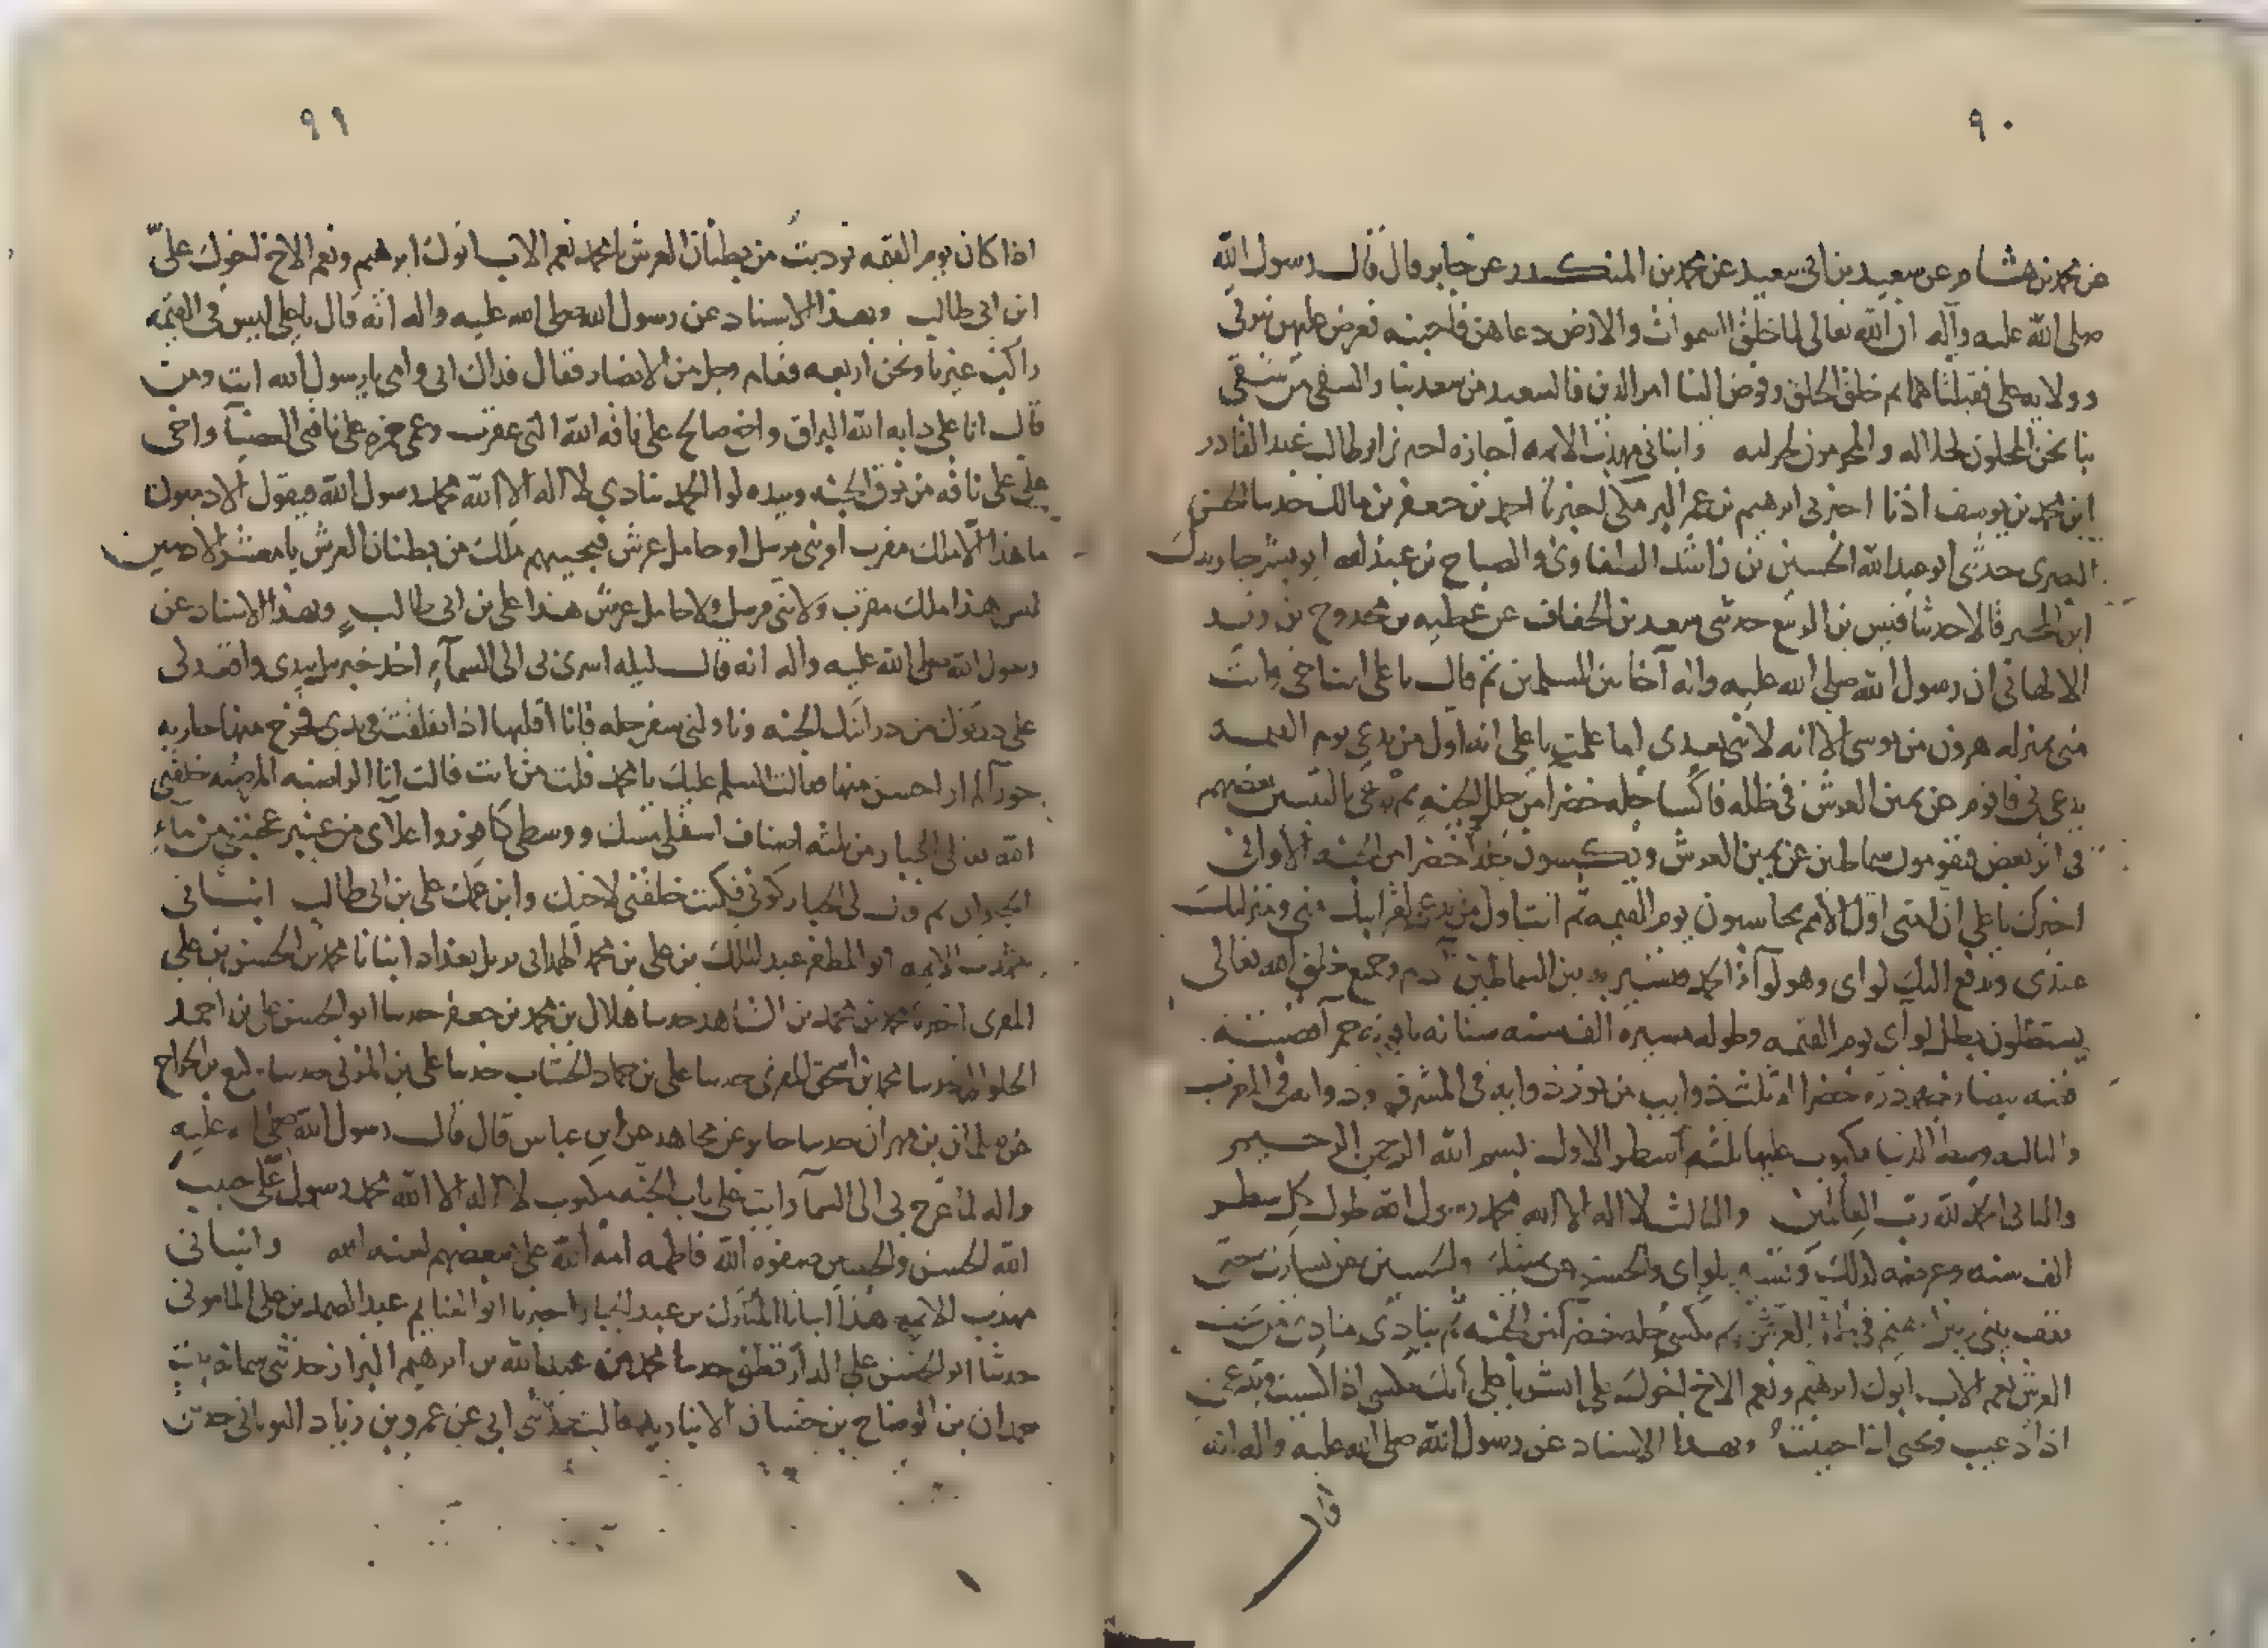 ٩٠
عن محمد بن هشام عن سعيد بن ابى سعيد عن محمد بن المنكدر عن جابر قال قال رسول الله
صلى الله عليه وآله ان الله تعالى لما خلق السموات والارض دعاهن فاجبنه فعرض عليهن نبوتى
وولايه على فقبلتاهما ثم خلق الخلق وفوض الينا امر الدين فالسعيد من سعد بنا والشقى من شقى
بنا نحن المحلون لحلاله والمحرمون لحرامه وانبانى مهذب الائمه اجازه اخبرنا ابو طالب عبد القادر
ابن محمد بن يوسف اذنا اخبرنى ابرهيم بن عمر البرمكى اخبرنا احمد بن جعفر بن مالك حدثنا الحسن
البصرى حدثنى ابو عبد الله الحسين بن راشد الطفاوى والصباح بن عبد الله ابو بشر
قالا حدثنا قيس بن الربيع حدثنى سعد بن الخفاف عن عطيه عن محدوج بن زيد
الالهانى ان رسول الله صلى الله عليه واله آخا بين المسلمين ثم قال يا على انت اخى وانت
منى بمنزله هرون من موسى الا انه لا نبى بعدى اما علمت يا على انه اول من يدعى يوم القيمه
يدعى بى فاقوم عن يمين العرش فى ظله فاكسا حله خضرا من حلل الجنه ثم يدعى بالنبيين بعضهم
فى اثر بعض فيقومون سماطين عن يمين العرش ويكسون حللا خضرا من الجنه الا وانى
اخبرك يا على ان امتى اول الامم يحاسبون يوم القيمه ثم انت اول من يدعى لقرابتك منى ومنزلتك
عندى ويدفع اليك لواى وهو لوآ الحمد فتسير به بين السماطين آدم وجميع خلق الله تعالى
يستظلون بظل لوآى يوم القيمه وطوله مسيره الف سنه سنانه ياقوته حمرآ
خضرا له ثلث ذوايب من نور ذوابه فى المشرق وذوابه فى المغرب
والثالثه وسط الدنيا مكتوب عليها ثلثه اسطر الاول بسم الله الرحمن الرحيم
والثانى الحمد لله رب العالمين والثالث لا اله الا الله محمد رسول الله طول كل سطر
الف سنه وعرضه كذلك وتسير بلواى والحسن عن يمينك والحسين عن يسارك حتى
تقف بينى وبين ابرهيم فى ظل العرش ثم تكسى حله خضرآ من الجنه ثم ينادى مناد من تحت
العرش نعم الاب ابوك ابرهيم ونعم الاخ اخوك على ابشر يا على انك تكسى اذا كسيت وتدعى
اذا دعيت وتحيى اذا حييت وبهذا الاسناد عن رسول الله صلى الله عليه واله انه
قال
٩١
اذا كان يوم القيمه نوديت من بطنان العرش يا محمد نعم الاب ابوك ابرهيم ونعم الاخ اخوك علىّ
ابن ابى طالب وبهذا الاسناد عن رسول الله صلى الله عليه واله انه قال يا على ليس فى القيمه
راكب غيرنا ونحن اربعه فقام رجل من الانصار فقال فداك ابى وامى يا رسول الله انت ومن
قال انا على دابه الله البراق واخى صالح على ناقه الله التى عقرت وعمى حمزه على ناقتى العضبآ واخى
على على ناقه من نوق الجنه وبيده لوا الحمد ينادى لا اله الا الله محمد رسول الله فيقول الادميون
ما هذا الا ملك مقرب او نبى مرسل او حامل عرش فيجيبهم ملك من بطنان العرش يا معشر الادميين
ليس هذا ملك مقرب ولا نبى مرسل ولا حامل عرش هذا على بن ابى طالب وبهذا الاسناد عن
رسول الله صلى الله عليه واله انه قال ليله اسرى بى الى السمآء اخذ جبرئيل بيدى واقعدنى
على درنوك من درانيك الجنه وناولنى سفرجله فانا اقلبها اذا انفلقت فى يدى فخرج منها جاريه
حورآ لم ار احسن منها فقالت السلم عليك يا محمد قلت من انت قالت انا الراضيه المرضيه خلقنى
الله تعالى الجبار من ثلثه اصناف اسفلى مسك ووسطى كافور واعلاى من عنبر عجننى من ماء
الحيوان ثم قال لى الجبار كونى فكنت خلقنى لاخيك وابن عمك على بن ابى طالب انبانى
مهذب الائمه ابو المظفر عبد الملك بن على بن محمد الهمدانى نزيل بغداد انبانا محمد بن الحسين بن على
المقرى اخبرنا محمد بن محمد بن الشاهد حدثنا هلال بن محمد بن جعفر حدثنا ابو الحسن على بن احمد
الحلوانى حدثنا محمد بن اسحق المقرى حدثنا على بن حماد الخشاب حدثنا على بن المدينى حدثنا وكيع بن الجراح
عن سليمان بن مهران حدثنا جابر عن مجاهد عن ابن عباس قال قال رسول الله صلى الله عليه
واله لما عرج بى الى السمآ رايت على باب الجنه مكتوب لا اله الا الله محمد رسول الله على حبيب
الله الحسن والحسين صفوه الله فاطمه امه الله على مبغضهم لعنه الله وانبانى
مهذب الائمه هذا انبانا المبارك بن عبد الجبار اخبرنا ابو الغنايم عبد الصمد بن على المامونى
حدثنا ابو الحسن على الدارقطنى حدثنا محمد بن عبد الله بن ابرهيم البزاز حدثنى سمانه بنت
حمدان بن الوضاح بن حسان الانباريه قالت حدثنى ابى عن عمرو بن زياد اليونانى حدثنى